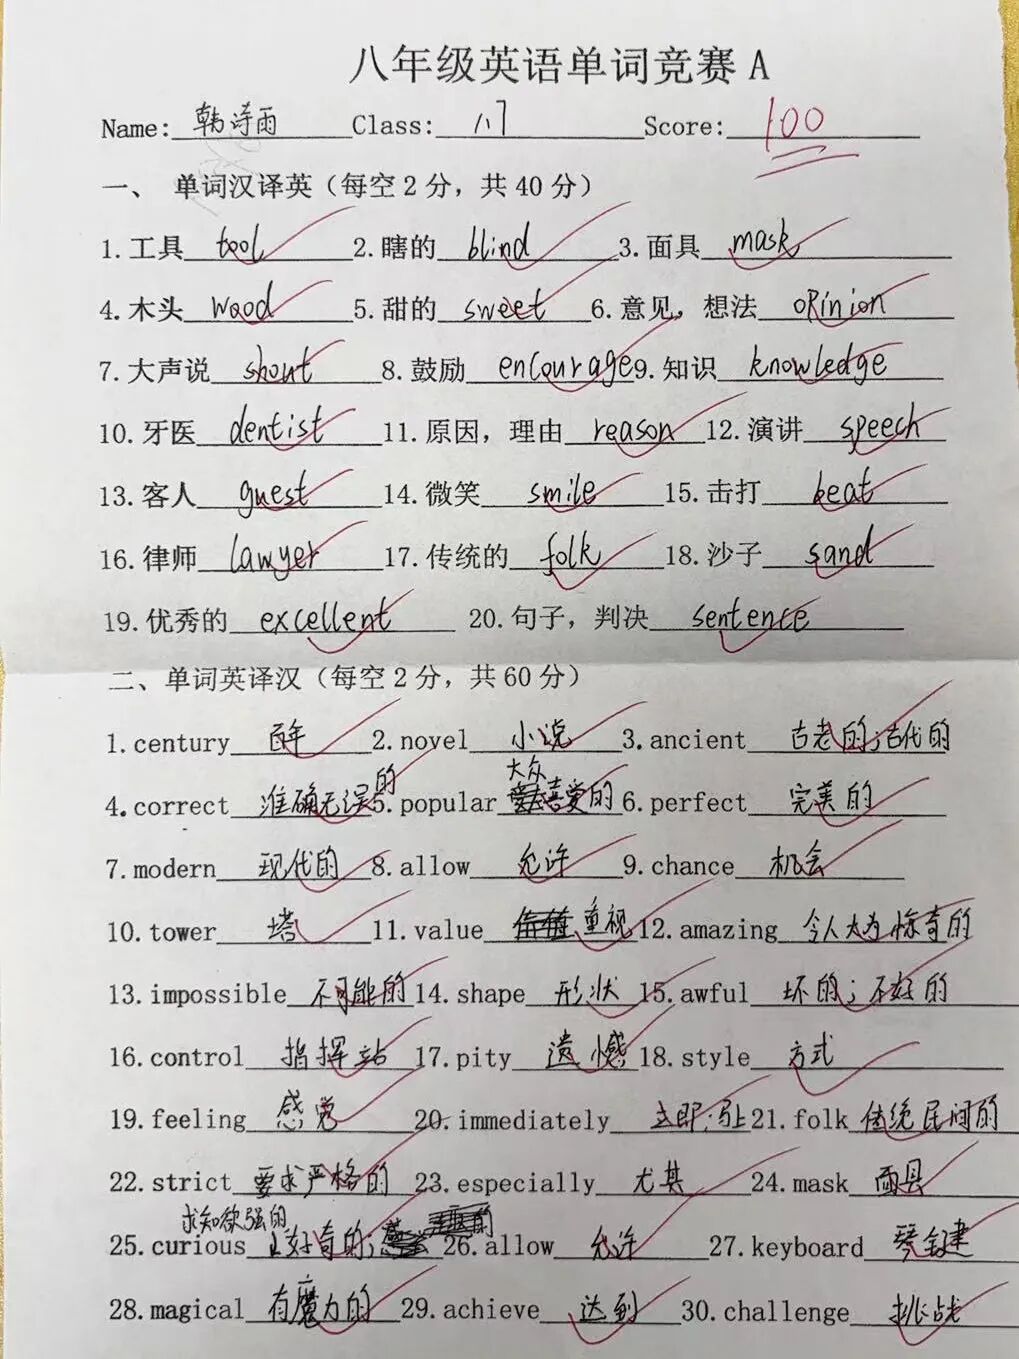 八年级英语单词竞赛 A
Name: 韩诗雨 Class: 八7 Score: 100
一、 单词汉译英（每空2分，共40分）
1.工具 tool 2.瞎的 blind 3.面具 mask
4.木头 wood 5.甜的 sweet 6.意见，想法 opinion
7.大声说 shout 8.鼓励 encourage 9.知识 knowledge
10.牙医 dentist 11.原因，理由 reason 12.演讲 speech
13.客人 guest 14.微笑 smile 15.击打 beat
16.律师 lawyer 17.传统的 folk 18.沙子 sand
19.优秀的 excellent 20.句子，判决 sentence
二、单词英译汉（每空2分，共60分）
1.century 百年 2.novel 小说 3.ancient 古老的；古代的
4.correct 准确无误的 5.popular 大众喜爱的 6.perfect 完美的
7.modern 现代的 8.allow 允许 9.chance 机会
10.tower 塔 11.value 重视 12.amazing 令人大为惊奇的
13.impossible 不可能的 14.shape 形状 15.awful 坏的；不好的
16.control 指挥站 17.pity 遗憾 18.style 方式
19.feeling 感觉 20.immediately 立即；马上 21.folk 传统民间的
22.strict 要求严格的 23.especially 尤其 24.mask 面具
求知欲强的
25.curious 好奇的； 26.allow 允许 27.keyboard 琴键
28.magical 有魔力的 29.achieve 达到 30.challenge 挑战